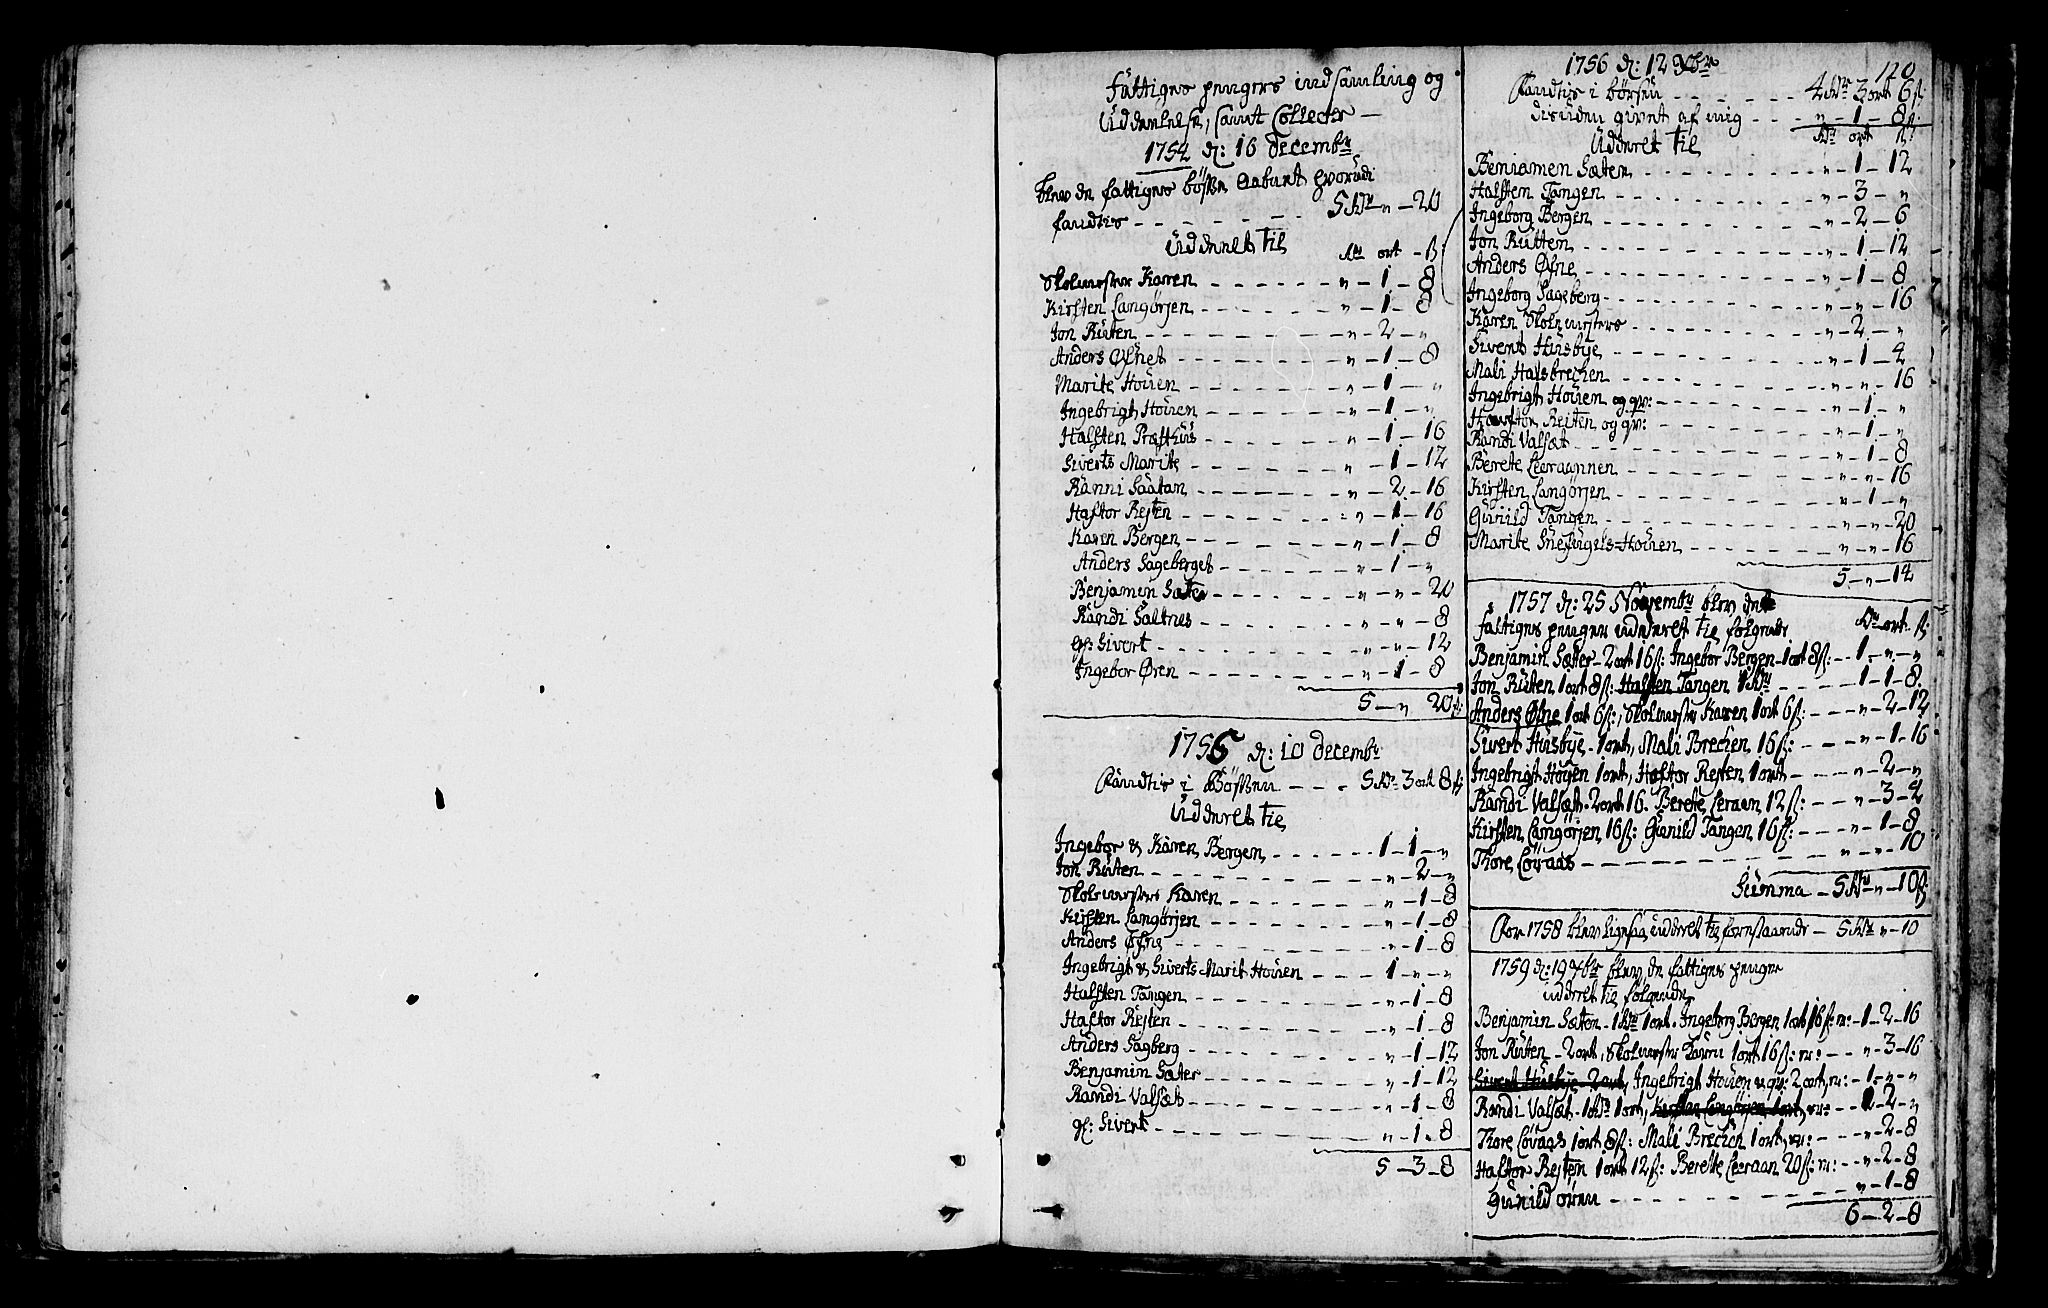 fattiges penges indsamling og
Uddeelelse, samt Collecter —
1754 d: 16 decembr
blev de fattiges bössen aabnet hvorudi
fandtes - - - - - 5 Rdr " - 20
Uddeelet til
Rdr ort - ß:
Skolmester Karen - - - - - - " - 1 - 8
Kirsten Langørjen - - - - - - " - 1 - 8
Jon Ruten - - - - - - " - 2 - "
Anders Øfnet - - - - - - " - 1 - 8
Marite Houen - - - - - - " - 1 - "
Ingebrigt Houen - - - - - - " - 1 - "
Halsten Præsthus - - - - - - " - 1 - 16
Siverts Marite - - - - - - " - 1 - 12
Ranni Saatan - - - - - - " - 2 - 16
Hastor Rejten - - - - - - " - 1 - 16
Karen Bergen - - - - - - " - 1 - 8
Anders Sageberget - - - - - - " - 1 - "
Benjamin Sæter - - - - - - " - " - 20
Randi Saltnes - - - - - - " - " - 8
gl: Sivert - - - - - - " - " - 12
Ingebor Øren - - - - - - " - 1 - 8
5 - " 20 ß:
1755 d: 10 decembr
fandtis i Bössen - - - 5 Rdr 3 ort 8 ß
Uddeelet til
Ingebor & Karen Bergen - - - - 1 - 1 - "
Jon Ruten - - - - - - " - 2 - "
Skolmesters Karen - - - - - - " - 1 - 8
Kirsten Langørjen - - - - - - " - 1 - 8
Anders Øfne - - - - - - " - 1 - 8
Ingebrigt & Siverts Marit Houen - - - 1 - " - "
Halsten Tangen - - - - - - " - 1 - 8
Hastor Rejten - - - - - - " - 1 - 8
Anders Sagberg - - - - - - " - 1 - 12
Benjamin Sæter - - - - - - " - 1 - 12
Randi Valsæt - - - - - - " - 1 - 8
gl: Sivert - - - - - - " - 1 - 8
5 - 3 - 8
1756 d: 12 Xbr
120
fandtis i börsen - - - - - 4 Rdr 3 ort 6 ß
desuden givet af mig - - - " - 1 - 8
Uddeelet til Rdr ort ß:
Benjamen Sæter - - - - - - " - 1 - 12
Halsten Tangen - - - - - - " - 3 - "
Ingeborg Bergen - - - - - - " - 2 - 6
Jon Rutten - - - - - - " - 1 - 12
Anders Øfne - - - - - - " - 1 - 8
Ingeborg Sageberg - - - - - - " - " - 16
Karen Skolemesters - - - - - - " - 2 - "
Sivert Husbye - - - - - - " - 1 - 4
Mali Halsbrechen - - - - - - " - " - 16
Ingebrigt Houen og qv: - - - - - - " - 1 - "
Hastor Reiten og qv: - - - - - - " - 1 - "
Randi Valsæt - - - - - - " - 1 - 8
Berete Leeraannen - - - - - - " - " - 16
Kirsten Langørjen - - - - - - " - 1 - "
Gunild Tangen - - - - - - " - " - 20
Marite Snefugels=Houen - - - - - - " - " - 16
5 - " - 14
1757 d: 25 Novembr blev de
fattiges penger uddeelet til følgende Rdr ort - ß
Benjamin Sæter - 2 ort 16 ß: Ingebor Bergen - 1 ort 8 ß: - - 1 - " - "
Jon Ruten 1 ort 8 ß: Halsten Tangen 1 Rdr - - - 1 - 1 - 8
Anders Øfne 1 ort 6 ß:, Skolmester Karen 1 ort 6 ß: - - - " - 2 - 12
Sivert Husbye - 1 ort, Mali Brechen 16 ß: - - - " - 1 - 16
Ingebrigt Houen 1 ort, Hastor Rejten 1 ort - - - " - 2 - "
Randi Valsæt - 2 ort 16. Berete Leraan 12 ß: - - " - 3 - 4
Kirsten Langørjen 16 ß: Gunild Tangen 16 ß: - - - " - 1 - 8
Thore Løvaas - - - - - - " - " - 10
Summa - 5 Rdr " - 10 ß:
For 1758 blev ligesaa uddeelet til formstaaende - 5 Rdr " - 10
1759 d: 19 Xbr blev de fattiges penge
uddeelet til følgende
Benjamin Sæter - 1 Rdr 1 ort - Ingeborg Bergen 1 ort 16 ß: er: - 1 - 2 - 16
Jon Ruten - 2 ort, Skolmester Karen 1 ort 16 ß: er: - - " - 3 - 16
Sivert Husbye - 2 ort, Ingebrigt Houen & qv: 2 ort, er: - 1 - " - "
Randi Valsæt - 1 Rdr 1 ort, Kirsten Langørjen 1 ort, er: - - 1 - 2 - "
Thore Løvaas 1 ort 8 ß: Mali Brechen 1 ort, er: - - - " - 2 - 8
Hastor Rejten 1 ort 12 ß: Berette Leeraan 20 ß: er: - - " - 2 - 8
Gunild øren - - - - - - " - 1 - 8
6 - 2 - 8